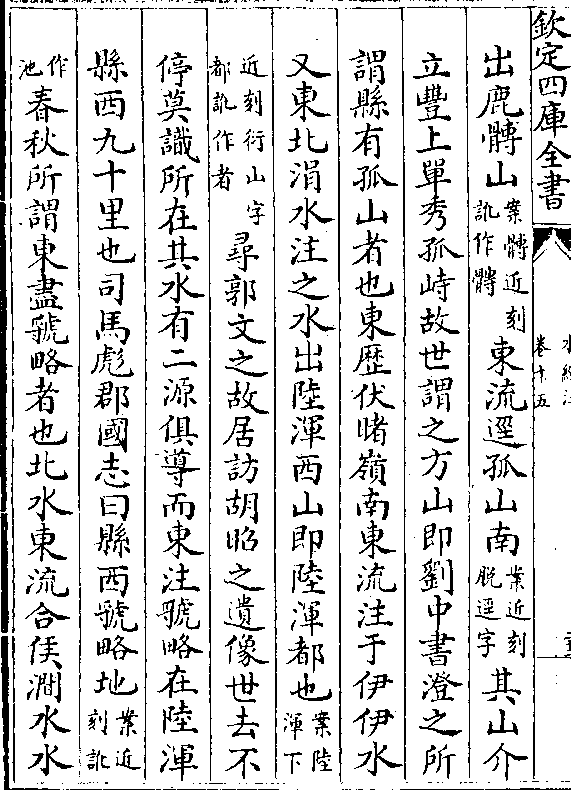 欽定四庫全書
卷十五
出鹿髆山案髆近刻訛作東流逕孤山南案近刻脫逕字其山介
立豐上單秀孤峙故世謂之方山即劉中書澄之所
謂縣有孤山者也東歷伏睹嶺南東流注于伊伊水
又東北涓水注之水出陸渾西山即陸渾都也案陸渾下
近刻衍山字都訛作者尋郭文之故居訪胡昭之遺像世去不
停莫識所在其水有二源俱導而東注虢略在陸渾
縣西九十里也司馬彪郡國志曰縣西虢略地案近刻訛
作池春秋所謂東盡虢略者也北水東流合侯澗水水